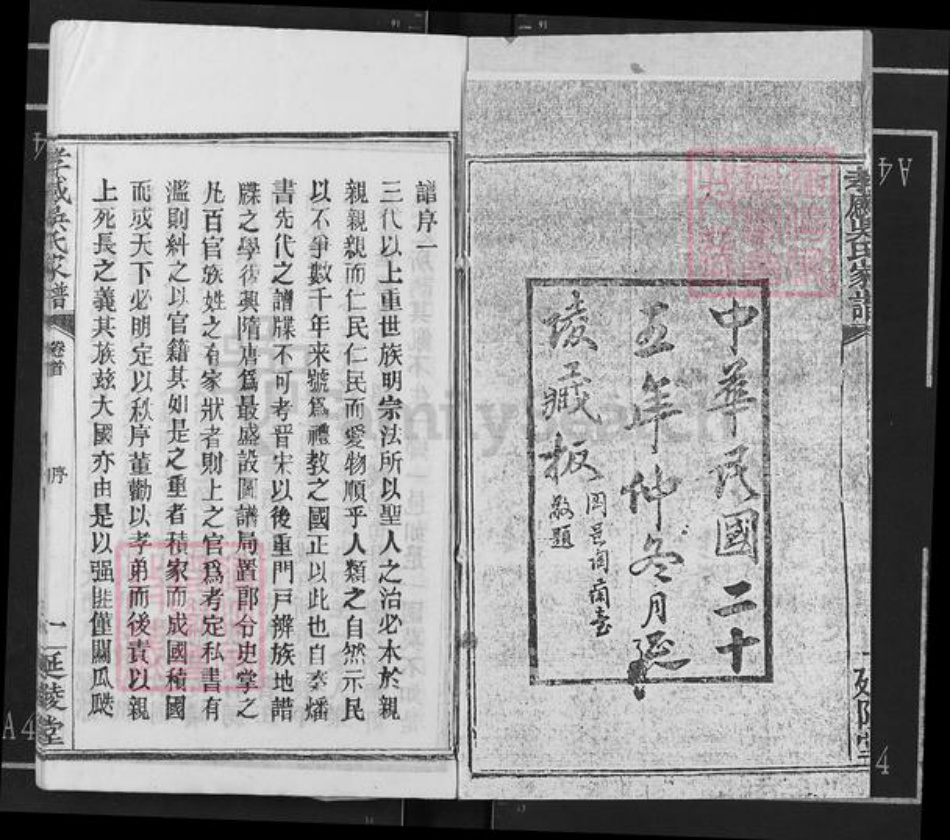 中華民國二十
五年仲冬月延
陵藏板
敬題
孝感吳氏家譜
延陵堂
譜序一
三代以上重世族明宗法所以聖人之治必本於親
親親親而仁民仁民而愛物順乎人類之自然示民
以不爭數千年來號爲禮教之國正以此也自秦燔
書先代之譜牒不可考晉宋以後重門戸辨族地譜
牒之學復興隋唐爲最盛設圖譜局置郎令史掌之
凡百官族姓之有家狀者則上之官爲考定私書有
濫則糾之以官籍其如是之重者積家而成國積國
而成天下必明定以秩序董勸以孝弟而後責以親
上死長之義其族玆大國亦由是以强匪僅關瓜瓞
孝感吳氏家譜
卷首
序
一
延陵堂
A4
A4
4